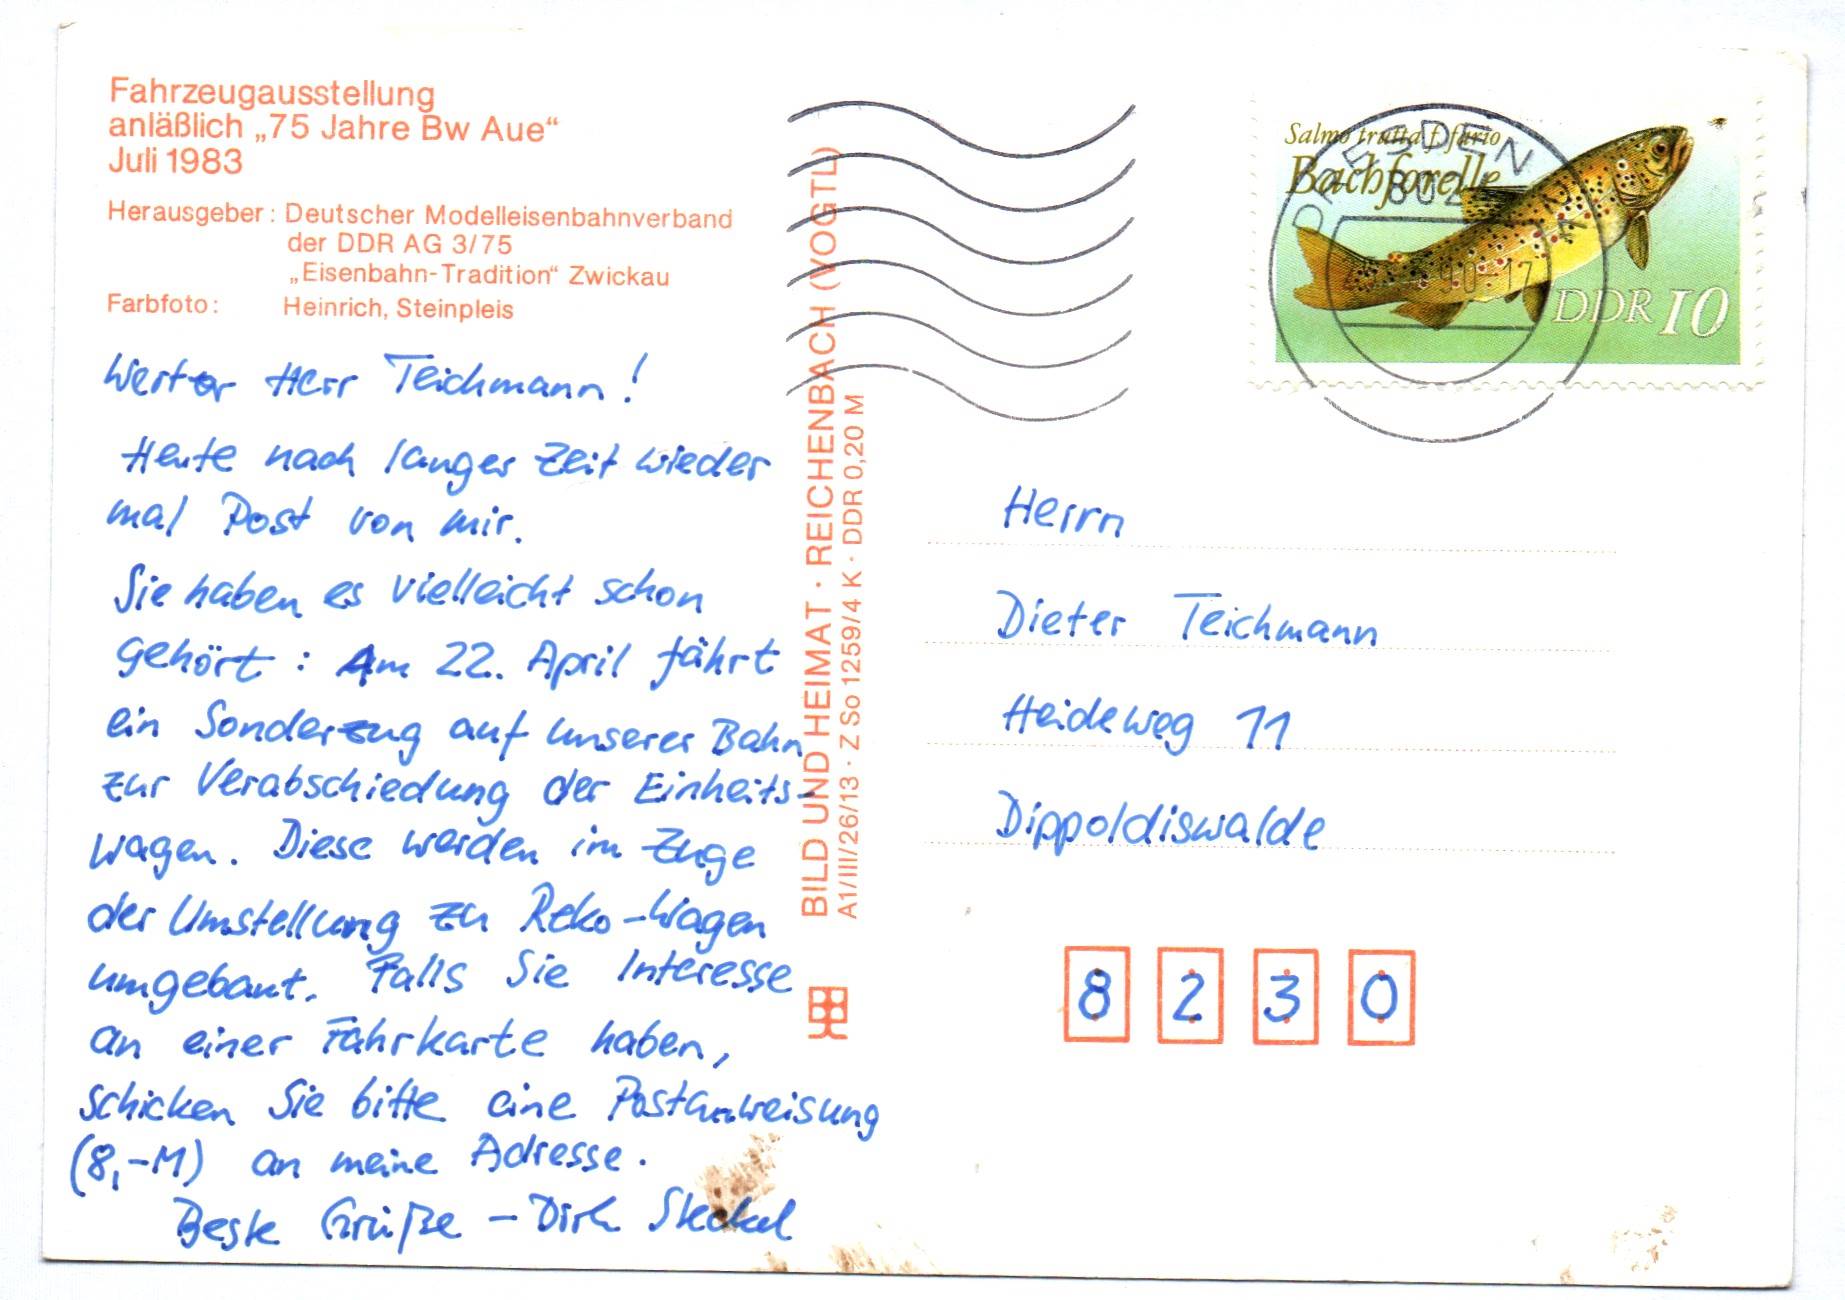 Fahrzeugausstellung
anläßlich „75 Jahre Bw Aue“
Juli 1983
Herausgeber: Deutscher Modelleisenbahnverband
der DDR AG 3/75
„Eisenbahn-Tradition“ Zwickau
Farbfoto: Heinrich, Steinpleis
Werter Herr Teichmann!
Heute nach langer Zeit wieder
mal Post von mir.
Sie haben es vielleicht schon
gehört: Am 22. April fährt
ein Sonderzug auf unserer Bahn
zur Verabschiedung der Einheits-
wagen. Diese werden im Zuge
der Umstellung zu Reko-Wagen
umgebaut. Falls Sie Interesse
an einer Fahrkarte haben,
schicken Sie bitte eine Postanweisung
(8,-M) an meine Adresse.
Beste Grüße - Dirk
BILD UND HEIMAT · REICHENBACH (VOGTL)
A1/III/26/13 · Z So 1259/4 K · DDR 0,20 M
Salmo trutta f. fario
Bachforelle
DDR 10
DRESDEN
802
90-17
Herrn
Dieter Teichmann
Heideweg 11
Dippoldiswalde
8230